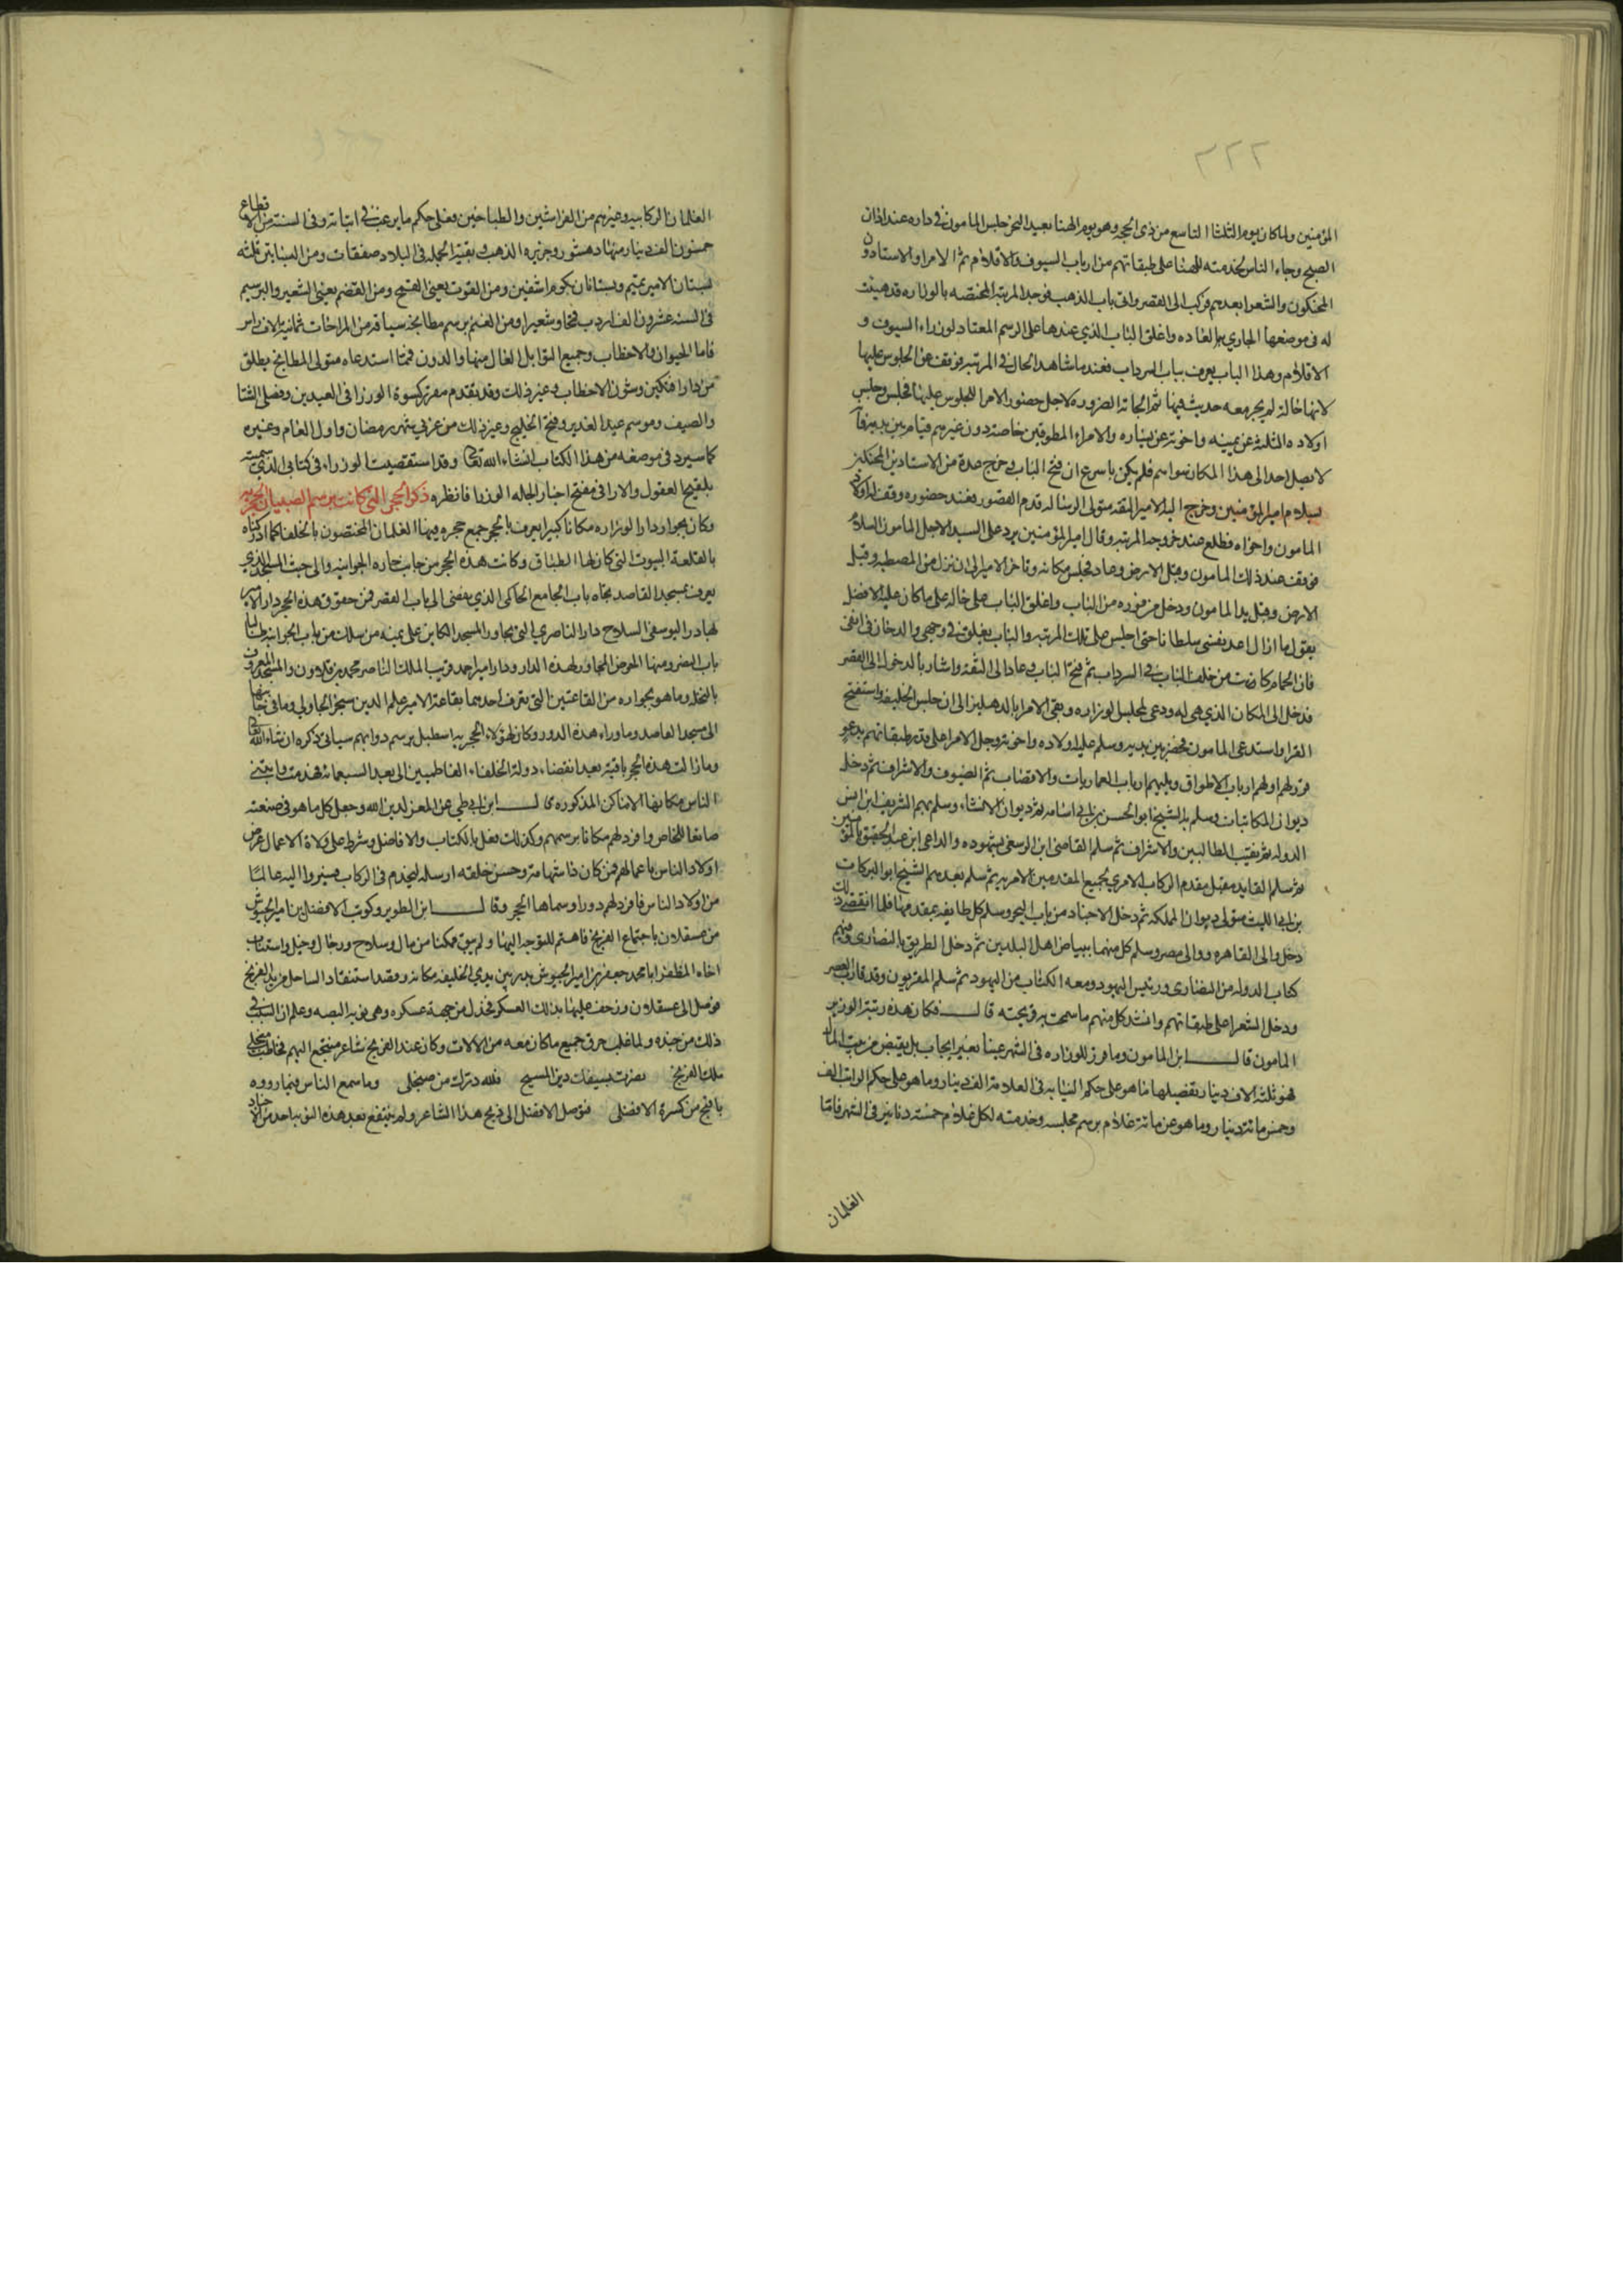 ٢٢٢
المؤمنين ولما كان يوم الثلثا التاسع من ذى الحجه وهو يوم الهنا بعيد النحر جلس المامون فى داره عند اذان
الصبح وجاء الناس لخدمته للهنا على طبقاتهم من ارباب السيوف والاقلام ثم الامرا والاستادون
المحنكون والشعرا بعدهم فركب الى القصر واتى باب الذهب فوجد المرتبه المختصه بالوزاره قد هيئت
له فى موضعها الجاري به العاده واغلق الباب الذي عندها على الرسم المعتاد لوزراء السيوف و
الاقلام وهذا الباب يعرف بباب السرداب فعند ما شاهد الحال فى المرتبه توقف عن الجلوس عليها
لانها حاله لم يجر معه حديث فيها ثم الجاته الضروره لاجل حضور الامرا للجلوس عليها فجلس وجلس
اولاده الثلثه عن يمينه واخوته عن يساره والامراء المطوقين خاصة دون غيرهم قيام بين يديه فانه
لا يصل احد الى هذا المكان سواهم فلم يكن باسرع ان فتح الباب وخرج عدة من الاستادين المحنكين
بسلام امير المؤمنين وخرج اليه الامير الثقه متولى الرساله وزم القصور فعند حضوره وقف له اولاد
المامون واخواه فطلع عند خروجه المرتبه وقال امير المؤمنين يرد على السيد الاجل المامون السلام
فوقف عند ذلك المامون وقبل الارض وعاد فجلس مكانه وتاخر الامير الى ان نزل من المصطبه وقبل
الارض وقبل يد المامون ودخل من فوره من الباب واغلق الباب على حاله على ما كان عليه الافضل
يقول ما ازال اعد نفسى سلطانا حتى اجلس على تلك المرتبه والباب يغلق فى وجهى والدخان فى انفى
فان الحمام كانت من خلف الباب فى السرداب ثم فتح الباب وعاد الى الثقه واشار بالدخول الى القصر
فدخل الى المكان الذي هيى له ودعى لمجلس الوزاره وبقى الامرا بالدهليز الى ان جلس الخليفه واستفتح
القرا واستدعى المامون فحضر بين يديه وسلم عليه اولاده واخوته وجلّ الامرا على قدر طبقاتهم
اولهم ارباب الاطواق ويليهم ارباب العماريات والاقصاب ثم الضيوف والاشراف ثم دخل
ديوان المكاتبات وسلم به الشيخ ابو الحسن بن ابي اسامه ثم ديوان الانشاء وسلم بهم الشريف ابن انس
الدوله ثم نقيب الطالبين والاشراف ثم سلم القاضى ابن الرسعنى بشهوده والداعى ابن عبد الحقيق بالمؤمنين
ثم سلم القايد مقبل مقدم الركاب الامري بجميع المقدمين الامريه ثم سلم بعدهم الشيخ ابو البركات
بن ابي الليث متولى ديوان المملكه ثم دخل الاجناد من باب البحر وسلم كل طايفه بمقدمها فلما انقضى ذلك
دخل والى القاهره ووالى مصر وسلم كل منهما ببياض اهل البلدين ثم دخل البطريق بالنصارى وفيهم
كتاب الدوله من النصارى ورئيس اليهود ومعه الكتاب من اليهود ثم سلم المقربون وقد قارب العصر
ودخل الشعرا على طبقاتهم وانشد كل منهم ما سمحت به قريحته قال فكان هذه رتبة الوزير
المامون قال ابن المامون وما قرر للوزاره فى الشهر عينا بغير ايجاب بل يقبض من بيت المال
فهو ثلثه الاف دينار تفضيلها ما هو على حكم النيابه فى العلامه الف دينار وما هو على حكم الراتب الف
وخمس مائه دينار وما هو عن مائة غلام برسم مجلسه وخدمته لكل غلام خمسة دنانير فى الشهر فاما
الغلمان
الغلمان الركابيه وغيرهم من الفراشين والطباخين فعلى حكم ما يرغب فى اثباته وفى السنه من الاقطاع
خمسون الف دينار منها دهشور وجزيره الذهب وبقية الجمله فى البلاد صفقات ومن البساتين ثلثه
بستان الامير تميم وبستانان بكوم اشفين ومن القوت يعنى القمح ومن القضم يعنى الشعير والبرسيم
فى السنه عشرون الف اردب قمحا وشعيرا ومن الغنم برسم مطابخه سياقه من المراحات ثمانية الاف راس
فاما الحيوان والاحطاب وجميع التوابل العال منها والدون فمهما استدعاه متولى المطابخ يطلق
من دار افتكين وشون الاحطاب وغير ذلك وقد تقدم مقرر كسوة الوزرا فى العيدين وفصلى الشتا
والصيف وموسم عيد الغدير وفتح الخليج وغير ذلك من غرتي شهر رمضان واول العام وغيره
كما سيرد فى موضعه من هذا الكتاب انشاء الله تعالى وقد استقصيت الوزراء فى كتابى الذي سميته
بلقيح العقول والارا فى مفتح اخبار الجله الوزرا فانظره ذكر الحجر التى كانت برسم الصبيان الحجريه
وكان بجوار دار الوزاره مكانا كبيرا يعرف بالحجر جمع حجره فيها الغلمان المختصون بالخلفا كما ادركناه
بالقلعه البيوت التى كان لها الطباق وكانت هذه الحجر من جانب حاره الجوانيه والى حيث المسجد الذي
يعرف بمسجد القاصد تجاه باب الجامع الحاكمى الذي يفضى الى باب القصر فمن حقوق هذه الحجر دار الامير
بهادر اليوسفى السلاح دار الناصري التى تجاور المسجد الكاين على يمينه من سلك من باب الجوانيه طالبا
باب النصر ومنها الحوض المجاور لهذه الدار ودار امير احمد قريب الملك الناصر محمد بن قلاوون والمسجد المعروف
بالنخله وما هو بجواره من القاعتين التى تعرف احديهما بقاعة الامير علم الدين سنجر الجاولي وما فى جانبها
الى مسجد القاصد وما وراء هذه الدور وكان لهؤلاء الحجريه اسطبل برسم دوابهم سياتى ذكره ان شاء الله تعالى
وما زالت هذه الحجر باقية بعد انقضاء دولة الخلفاء الفاطميين الى بعد السبعمائه فهدمت وابتنى
الناس مكانها الاماكن المذكوره قال ابن ابي طي عن المعز لدين الله وجعل كل ما هو فى صنعته
صانعا للخاص وافرد لهم مكانا برسمهم وكذلك فعل بالكتاب والافاضل وشرط على ولاة الاعمال عرض
اولاد الناس باعمالهم فمن كان ذا شهامة وحسن خلقه ارسله ليخدم فى الركاب فسيروا اليه عالما
من اولاد الناس فافرد لهم دورا وسماها الحجر وقال ابن الطوير وكوتب الافضل بن امير الجيوش
من عسقلان باجتماع الفرنج فاهتم للتوجه اليها ولم يبق ممكنا من مال وسلاح ورجال وخيل واستناب
اخاه المظفر ابا محمد جعفر بن امير الجيوش بدر بين يدي الخليفه مكانه وقصد استنقاد الساحل من يد الفرنج
فوصل الى عسقلان وزحف عليها بذلك العسكر فخذل من جهة عسكره وهى نوبه البصه وعلم ان السبب فى
ذلك من جنده ولما غلب حرق جميع ما كان معه من الالات وكان عند الفرنج شاعر منتجع اليهم فخاطب صنجل
ملك الفرنج نصرت بسيفك دين المسيح فلله درك من صنجلى وما سمع الناس فيما رووه
باقبح من كسرة الافضلى فتوصل الافضل الى ذبح هذا الشاعر ولم ينتفع بعد هذه النوبه احد من الاجناد